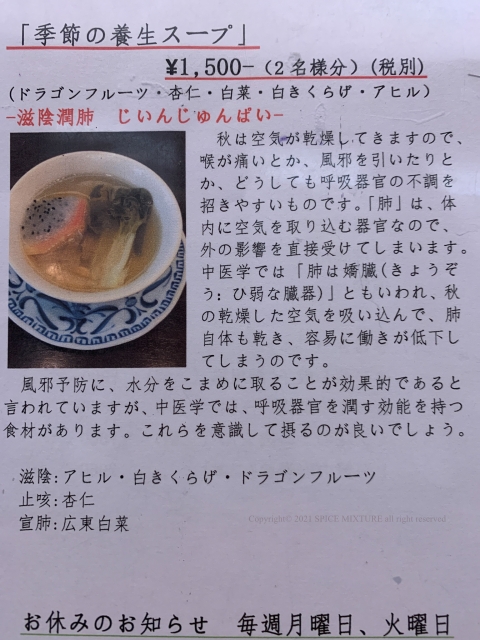 「季節の養生スープ」
¥1,500-（2名様分）(税別)
(ドラゴンフルーツ・杏仁・白菜・白きくらげ・アヒル)
-滋陰潤肺　じいんじゅんぱい-
秋は空気が乾燥してきますので、
喉が痛いとか、風邪を引いたりと
か、どうしても呼吸器官の不調を
招きやすいものです。「肺」は、体
内に空気を取り込む器官なので、
外の影響を直接受けてしまいます。
中医学では「肺は嬌臓(きょうぞ
う：ひ弱な臓器)」ともいわれ、秋
の乾燥した空気を吸い込んで、肺
自体も乾き、容易に働きが低下し
てしまうのです。
風邪予防に、水分をこまめに取ることが効果的であると
言われていますが、中医学では、呼吸器官を潤す効能を持つ
食材があります。これらを意識して摂るのが良いでしょう。
滋陰:アヒル・白きくらげ・ドラゴンフルーツ
止咳:杏仁
宣肺:広東白菜
Copyright© 2021 SPICE MIXTURE all right reserved
お休みのお知らせ　毎週月曜日、火曜日